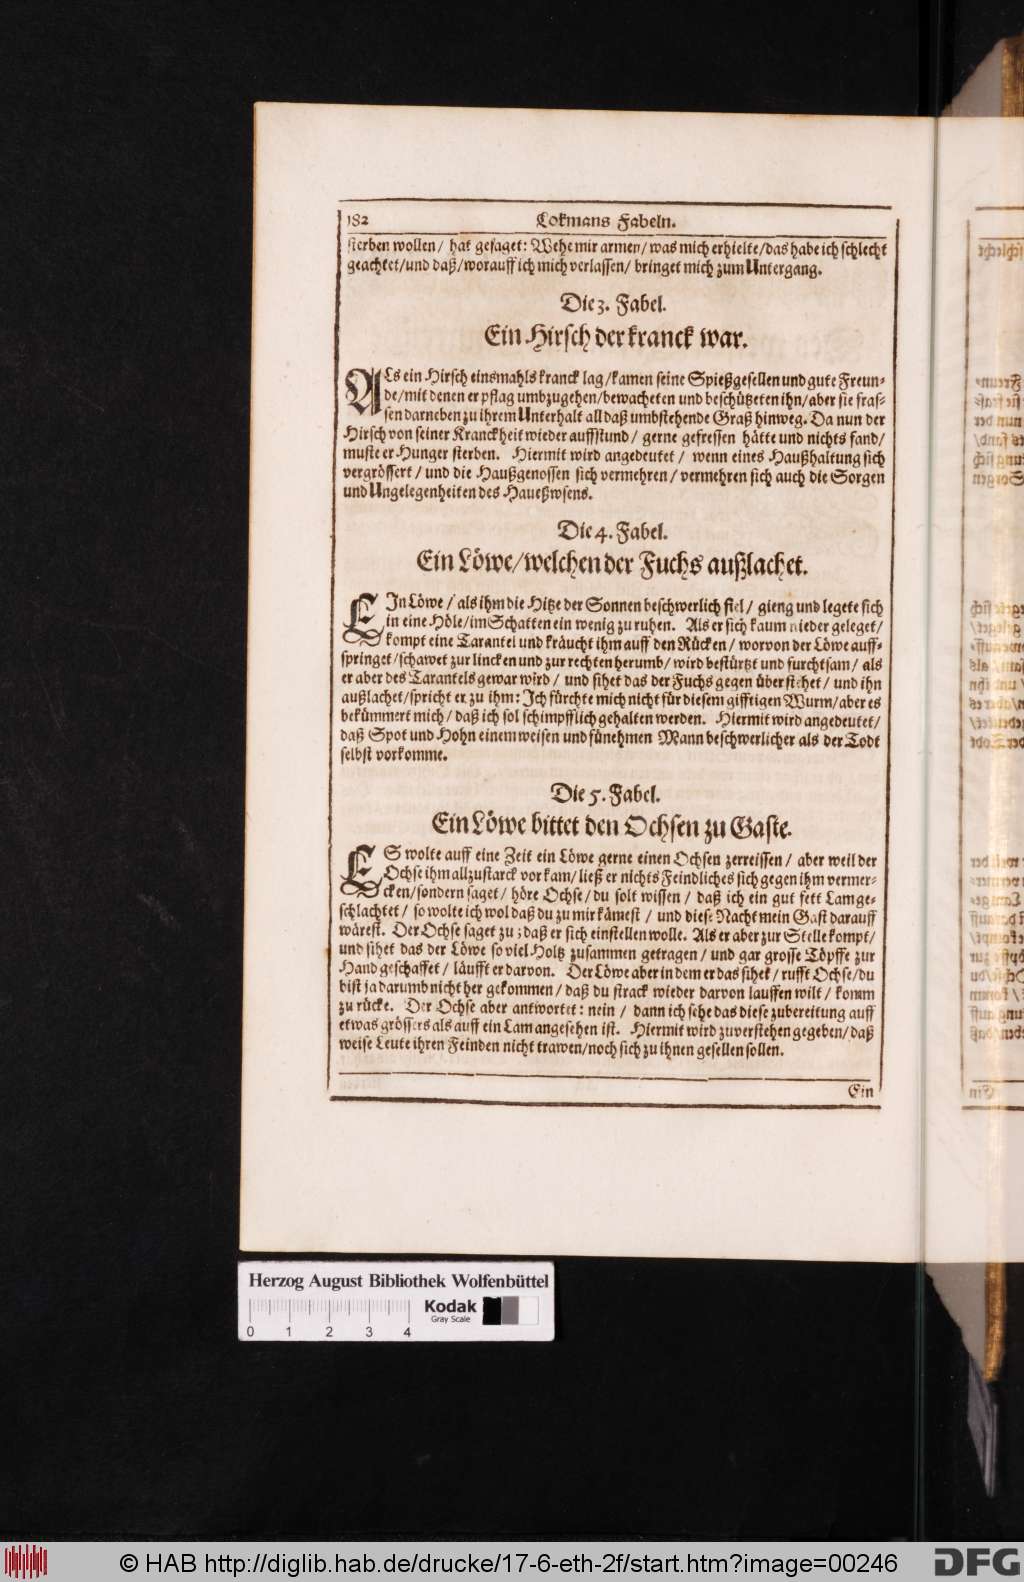 182 Lokmans Fabeln.
sterben wollen / hat gesaget: Wehe mir armen / was mich erhielte / das habe ich schlecht
geachtet / und daß / worauff ich mich verlassen / bringet mich zum Untergang.
Die 3. Fabel.
Ein Hirsch der kranck war.
ALs ein Hirsch einsmahls kranck lag / kamen seine Spießgesellen und gute Freun-
de / mit denen er pflag umbzugehen / bewacheten und beschützeten ihn / aber sie fras-
sen darneben zu ihrem Unterhalt all daß umbstehende Graß hinweg. Da nun der
Hirsch von seiner Kranckheit wieder auffstund / gerne gefressen hätte und nichts fand /
muste er Hunger sterben. Hiermit wird angedeutet / wenn eines Haußhaltung sich
vergrössert / und die Haußgenossen sich vermehren / vermehren sich auch die Sorgen
und Ungelegenheiten des Haueßwsens.
Die 4. Fabel.
Ein Löwe / welchen der Fuchs außlachet.
EIn Löwe / als ihm die Hitze der Sonnen beschwerlich fiel / gieng und legete sich
in eine Höle / im Schatten ein wenig zu ruhen. Als er sich kaum nieder geleget /
kompt eine Tarantel und kräucht ihm auff den Rücken / worvon der Löwe auff-
springet / schawet zur lincken und zur rechten herumb / wird bestürtzt und furchtsam / als
er aber des Tarantels gewar wird / und sihet das der Fuchs gegen über stehet / und ihn
außlachet / spricht er zu ihm: Ich fürchte mich nicht für diesem gifftigen Wurm / aber es
bekümmert mich / daß ich sol schimpfflich gehalten werden. Hiermit wird angedeutet /
daß Spot und Hohn einem weisen und fünehmen Mann beschwerlicher als der Todt
selbst vorkomme.
Die 5. Fabel.
Ein Löwe bittet den Ochsen zu Gaste.
ES wolte auff eine Zeit ein Löwe gerne einen Ochsen zerreissen / aber weil der
Ochse ihm allzustarck vorkam / ließ er nichts Feindliches sich gegen ihm vermer-
cken / sondern saget / höre Ochse / du solt wissen / daß ich ein gut fett Lam ge-
schlachtet / so wolte ich wol daß du zu mir kämest / und diese Nacht mein Gast darauff
wärest. Der Ochse saget zu; daß er sich einstellen wolle. Als er aber zur Stelle kompt /
und sihet das der Löwe so viel Holtz zusammen getragen / und gar grosse Töpffe zur
Hand geschaffet / läufft er darvon. Der Löwe aber in dem er das sihet / rufft Ochse / du
bist ja darumb nicht her gekommen / daß du strack wieder darvon lauffen wilt / komm
zu rücke. Der Ochse aber antwortet: nein / dann ich sehe das diese zubereitung auff
etwas grössers als auff ein Lam angesehen ist. Hiermit wird zuverstehen gegeben / daß
weise Leute ihren Feinden nicht trawen / noch sich zu ihnen gesellen sollen.
Ein
Herzog August Bibliothek Wolfenbüttel
Kodak
Gray Scale
0 1 2 3 4
© HAB http://diglib.hab.de/drucke/17-6-eth-2f/start.htm?image=00246
DFG